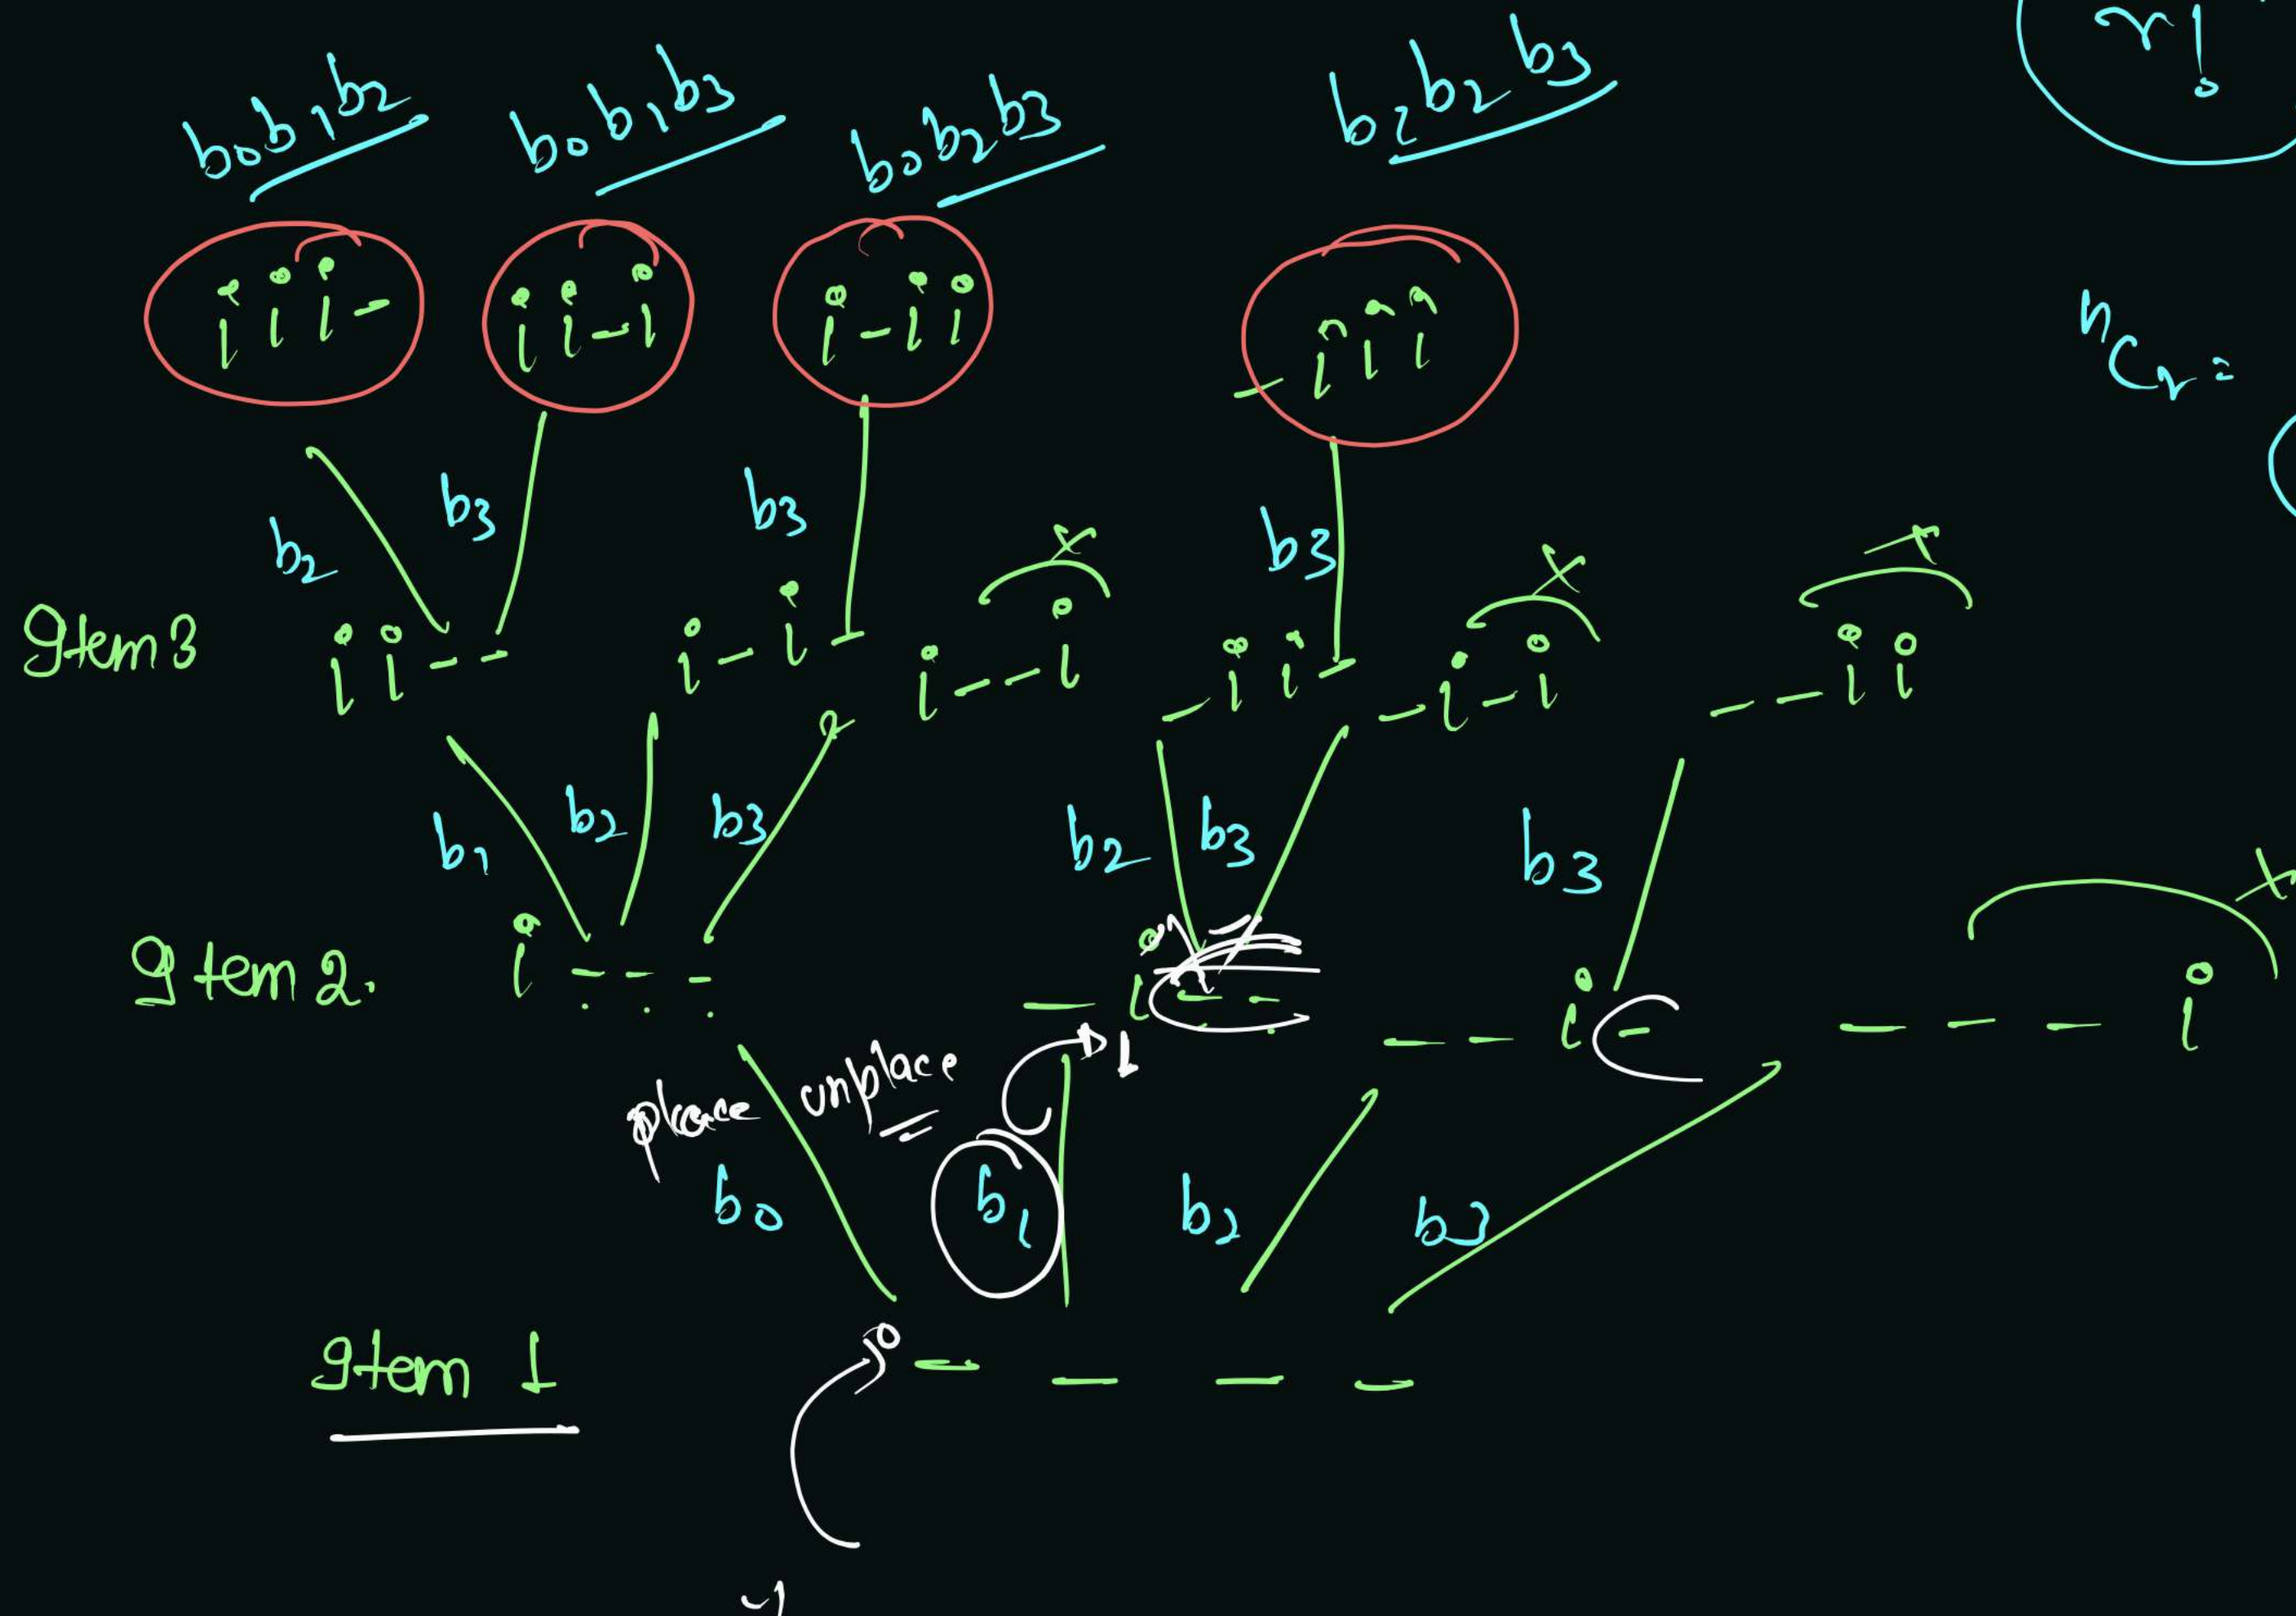 b0b1b2 b0b1b3 b0b2b3 b1b2b3
r!
i i i - i i - i i - i i - i i i
nCr =
b2 b3 b3 b3
Item 3 i i - - i - i - i - - i - i i - - i - i - - i i
b1 b2 b3 b2 b3 b3
Item 2. i - - - - i - - - - i - - - - i
place unplace 1
b0 b1 b2 b3
Item 1 - - - -